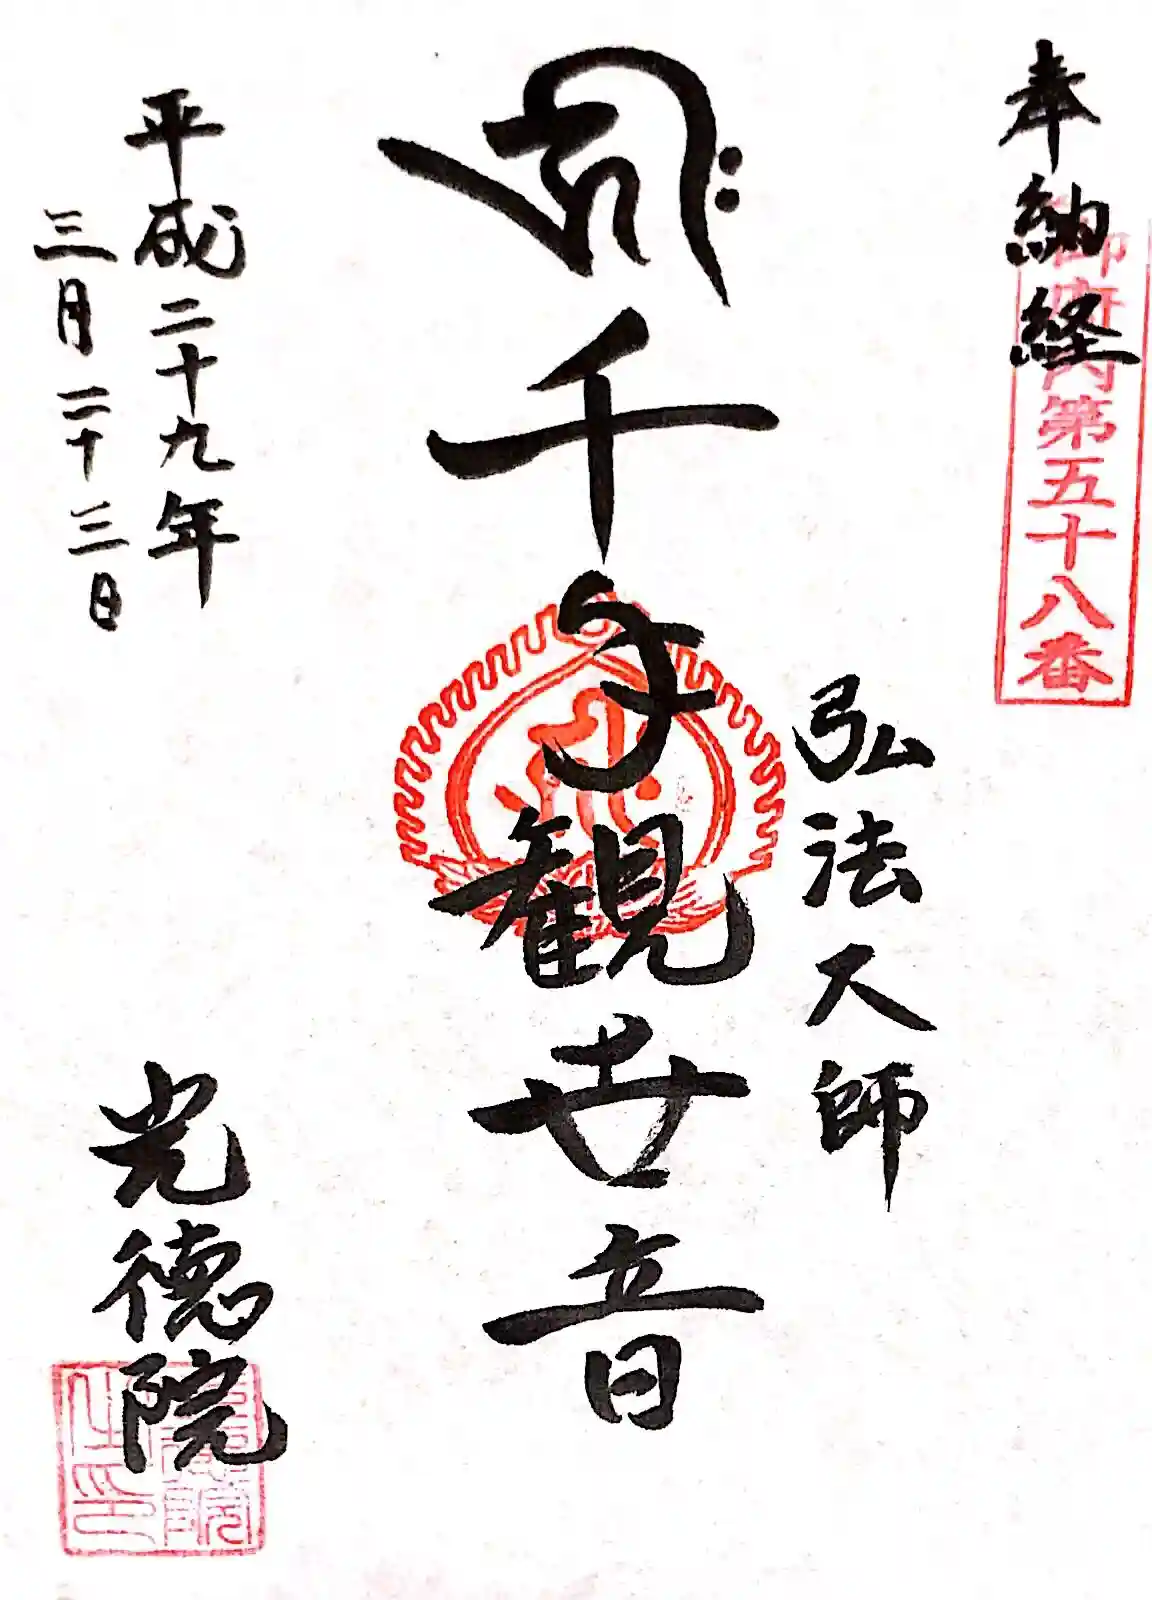 奉納経
御府内第五十八番
弘法大師
千手観世音
平成二十九年
三月二十三日
光徳院